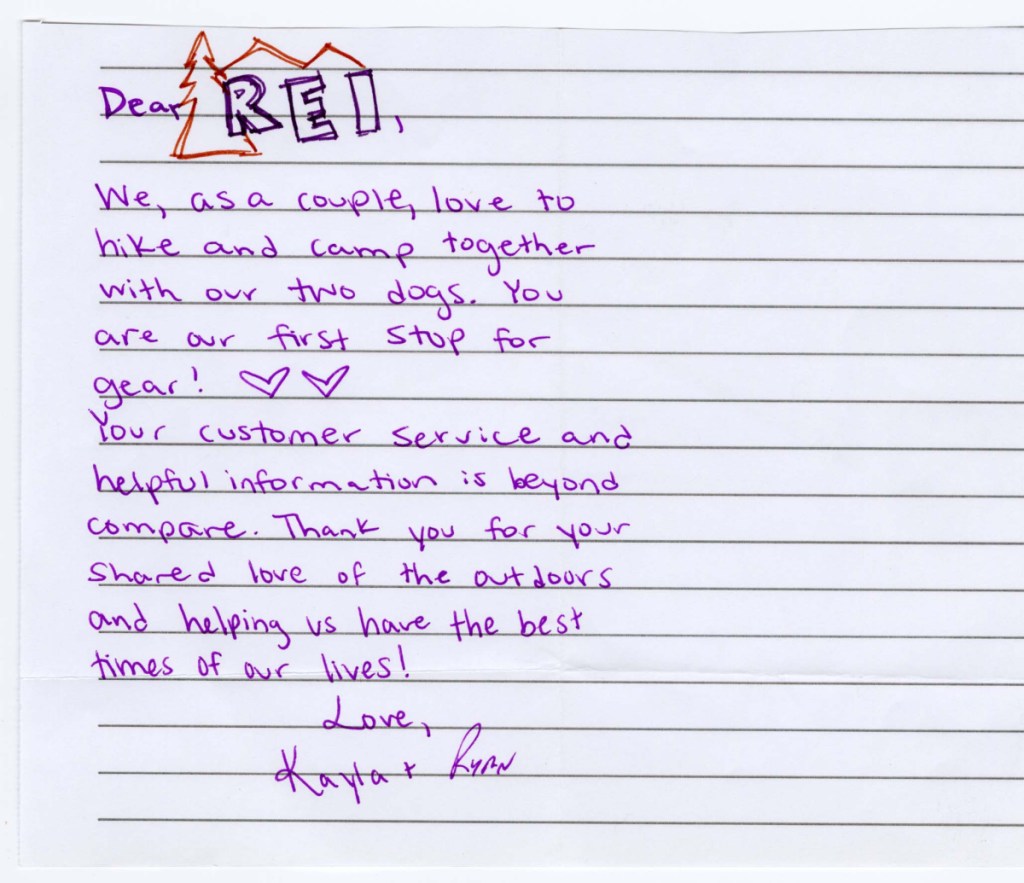 Dear REI,
We, as a couple, love to
hike and camp together
with our two dogs. You
are our first stop for
gear! ♡♡
Your customer service and
helpful information is beyond
compare. Thank you for your
shared love of the outdoors
and helping us have the best
times of our lives!
Love,
Kayla + Ryan